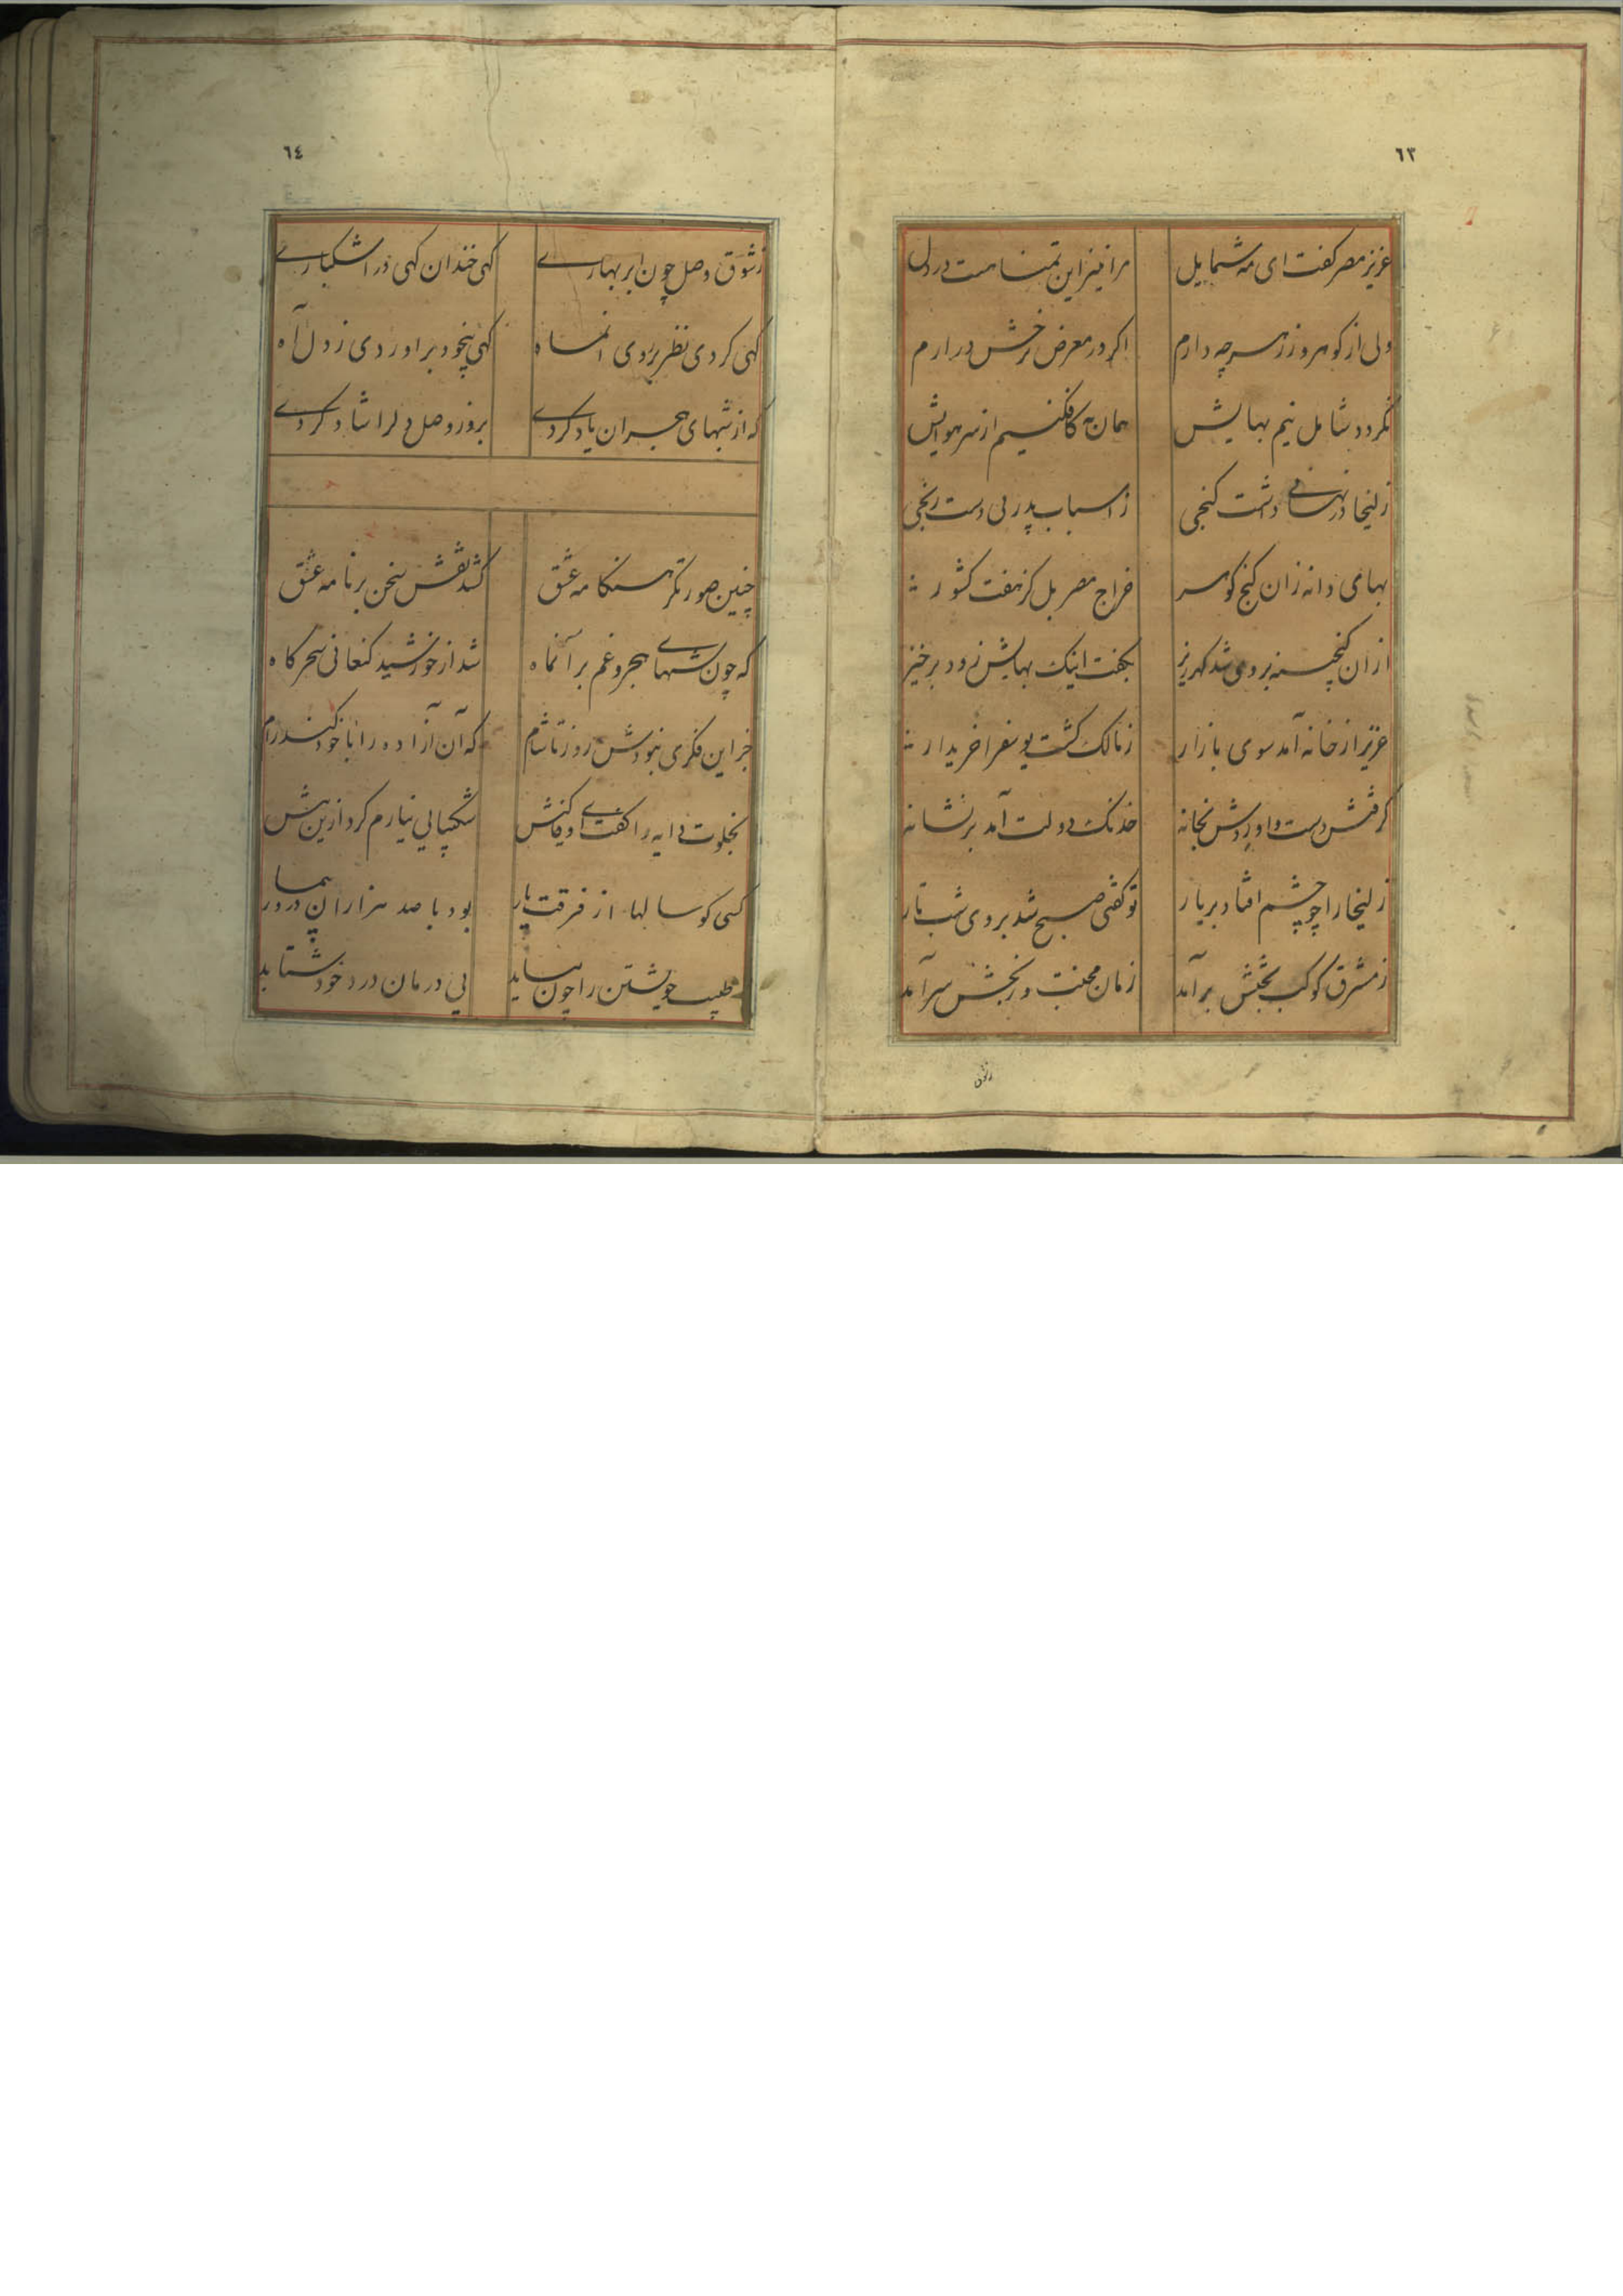 ٦٣
عزیز مصر گفت ای مه شمایل مرا نیز این تمنا هست در دل
ولی از گوهر و زر هر چه دارم اگر در معرض نرخش درارم
نگردد شامل نیم بهایش همان به کافکنیم از سر هوایش
زلیخا در نهانی داشت گنجی ز اسباب پدر بی دست رنجی
بهای دانه زان گنج گوهر خراج مصر بل کز هفت کشور
ازان گنجینه بروی شد گهرریز بگفت اینک بهایش زود برخیز
عزیز از خانه آمد سوی بازار ز مالک گشت یوسف را خریدار
گرفتش دست و اوردش بخانه خدنگ دولت آمد بر نشانه
زلیخا را چو چشم افتاد بر یار تو گفتی صبح شد بروی شب تار
ز مشرق کوکب بختش برآمد زمان محنت و رنجش سرآمد
ز شوق
٦٤
ز شوق وصل چون ابر بهاری گهی خندان گهی در اشکباری
گهی کردی نظر بر روی انماه گهی بیخود براوردی ز دل آه
که از شبهای هجران یاد کردی بروز وصل دلرا شاد کردی
چنین صورتگر هنگامه عشق کشد نقش سخن بر نامه عشق
که چون شبهای هجر و غم بر آنماه شد از خورشید کنعانی سحرگاه
جز این فکری نبودش روز تا شام که آن آزاده را با خود کند رام
بخلوت دایه را گفتی شکیبایی نیارم کرد ازین بیش
کسی کو سالها از فرقت یار بود با صد هزاران درد بیمار
طبیب خویشتن را چون بیابد پی درمان درد خود شتابد